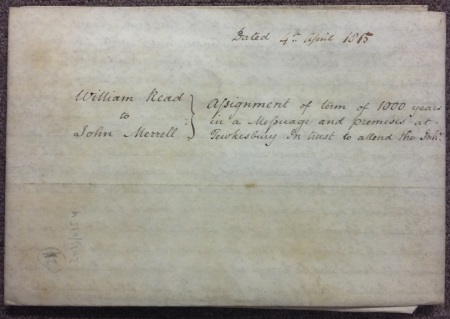 Dated 4th April 1815
William Read
to
John Merrell
Assignment of term of 1000 years
in a Messuage and premises at
Tewkesbury In trust to attend the Inh: